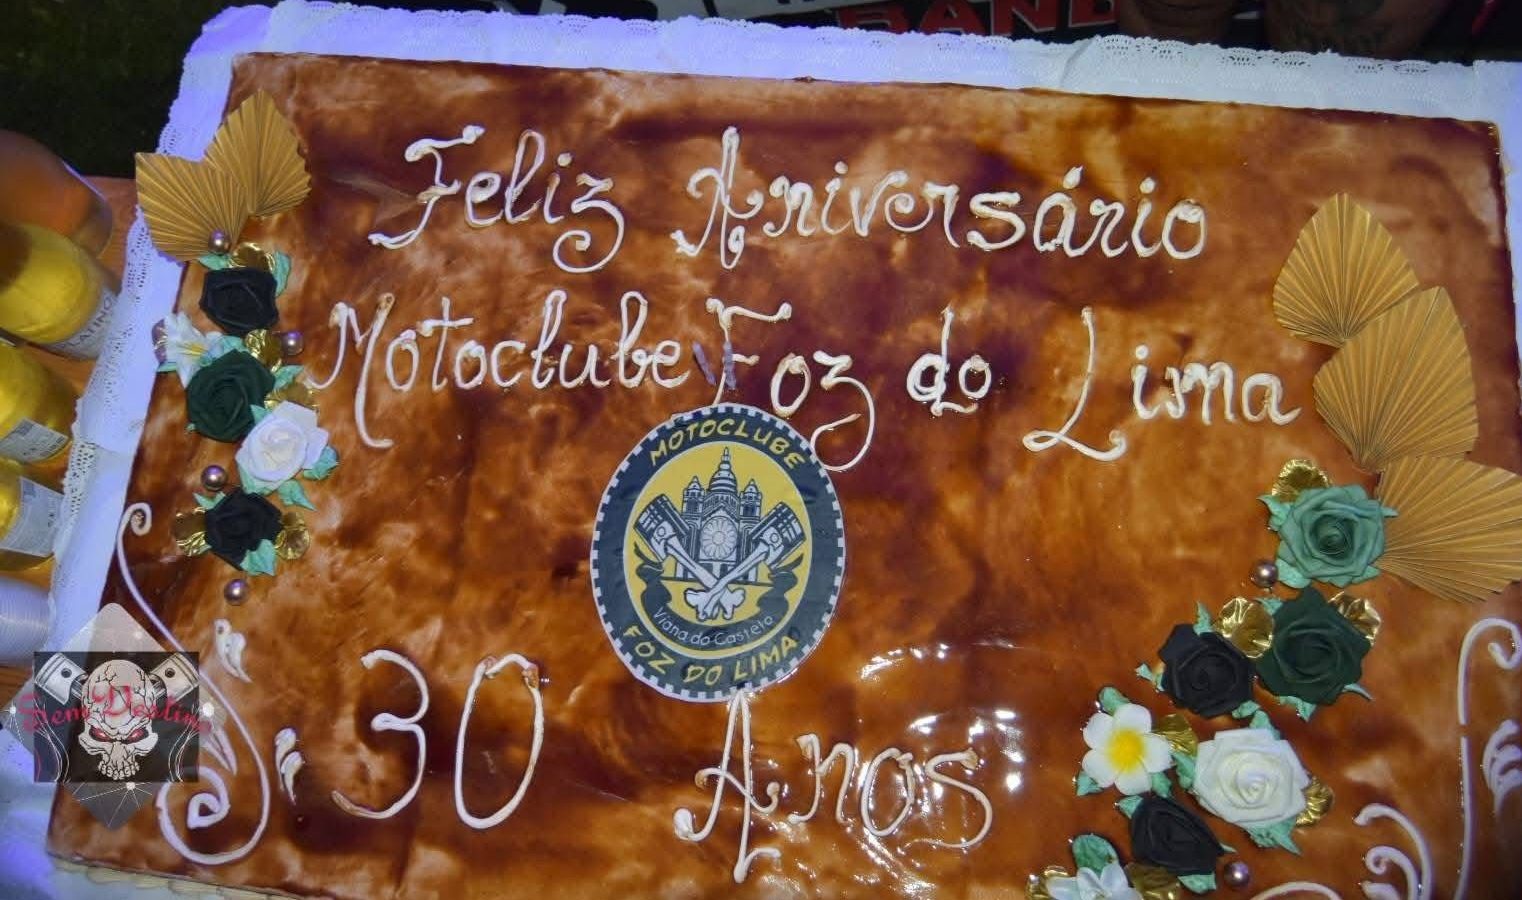 BAND
Feliz Aniversário
Motoclube Foz do Lima
MOTOCLUBE
Viana do Castelo
FOZ DO LIMA
30 Anos
Sem Destino